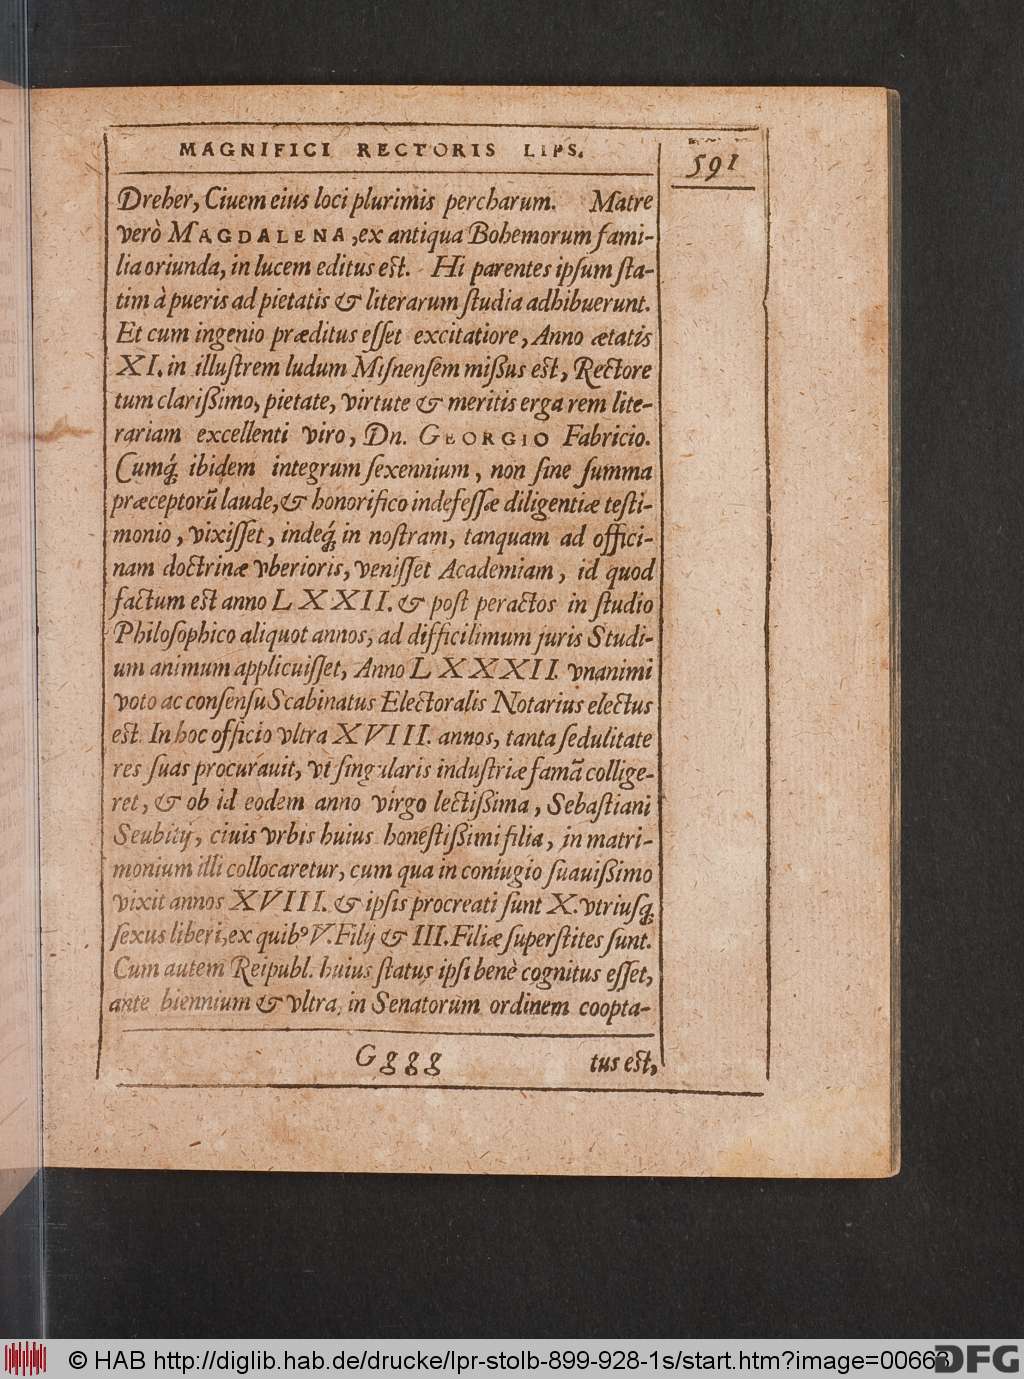 MAGNIFICI RECTORIS LIPS.
591
Dreher, Ciuem eius loci plurimis percharum. Matre
verò MAGDALENA, ex antiqua Bohemorum fami-
lia oriunda, in lucem editus est. Hi parentes ipſum ſta-
tim à pueris ad pietatis & literarum ſtudia adhibuerunt.
Et cum ingenio præditus eſſet excitatiore, Anno ætatis
XI. in illuſtrem ludum Miſnenſem mißus eſt, Rectore
tum clarißimo, pietate, virtute & meritis erga rem lite-
rariam excellenti viro, Dn. GEORGIO Fabricio.
Cumq́; ibidem integrum ſexennium, non ſine ſumma
præceptorũ laude, & honorifico indefeſſæ diligentiæ teſti-
monio, vixiſſet, indeq́; in noſtram, tanquam ad offici-
nam doctrinæ vberioris, veniſſet Academiam, id quod
factum eſt anno LXXII. & poſt peractos in ſtudio
Philoſophico aliquot annos, ad difficilimum juris Studi-
um animum applicuiſſet, Anno LXXXII. vnanimi
voto ac conſenſu Scabinatus Electoralis Notarius electus
eſt. In hoc officio vltra XVIII. annos, tanta ſedulitate
res ſuas procurauit, vt ſingularis induſtriæ famã collige-
ret, & ob id eodem anno virgo lectißima, Sebaſtiani
Seubitij, ciuis vrbis huius honeſtißimi filia, in matri-
monium illi collocaretur, cum qua in coniugio ſuauißimo
vixit annos XVIII. & ipſis procreati ſunt X. vtriuſq;
ſexus liberi, ex quibꝰ V. Filij & III. Filiæ ſuperſtites ſunt.
Cum autem Reipubl. huius ſtatus ipſi benè cognitus eſſet,
ante biennium & vltra, in Senatorum ordinem coopta-
Gggg
tus eſt,
© HAB http://diglib.hab.de/drucke/lpr-stolb-899-928-1s/start.htm?image=00663
DFG